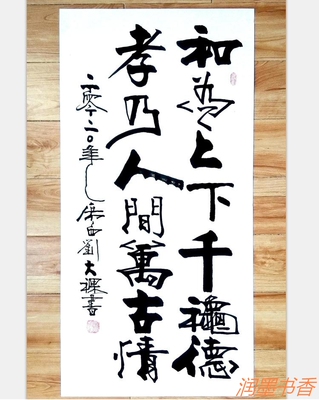 和為上下千禧德
孝乃人間萬古情
二零二零年
劉大課書
润墨书香